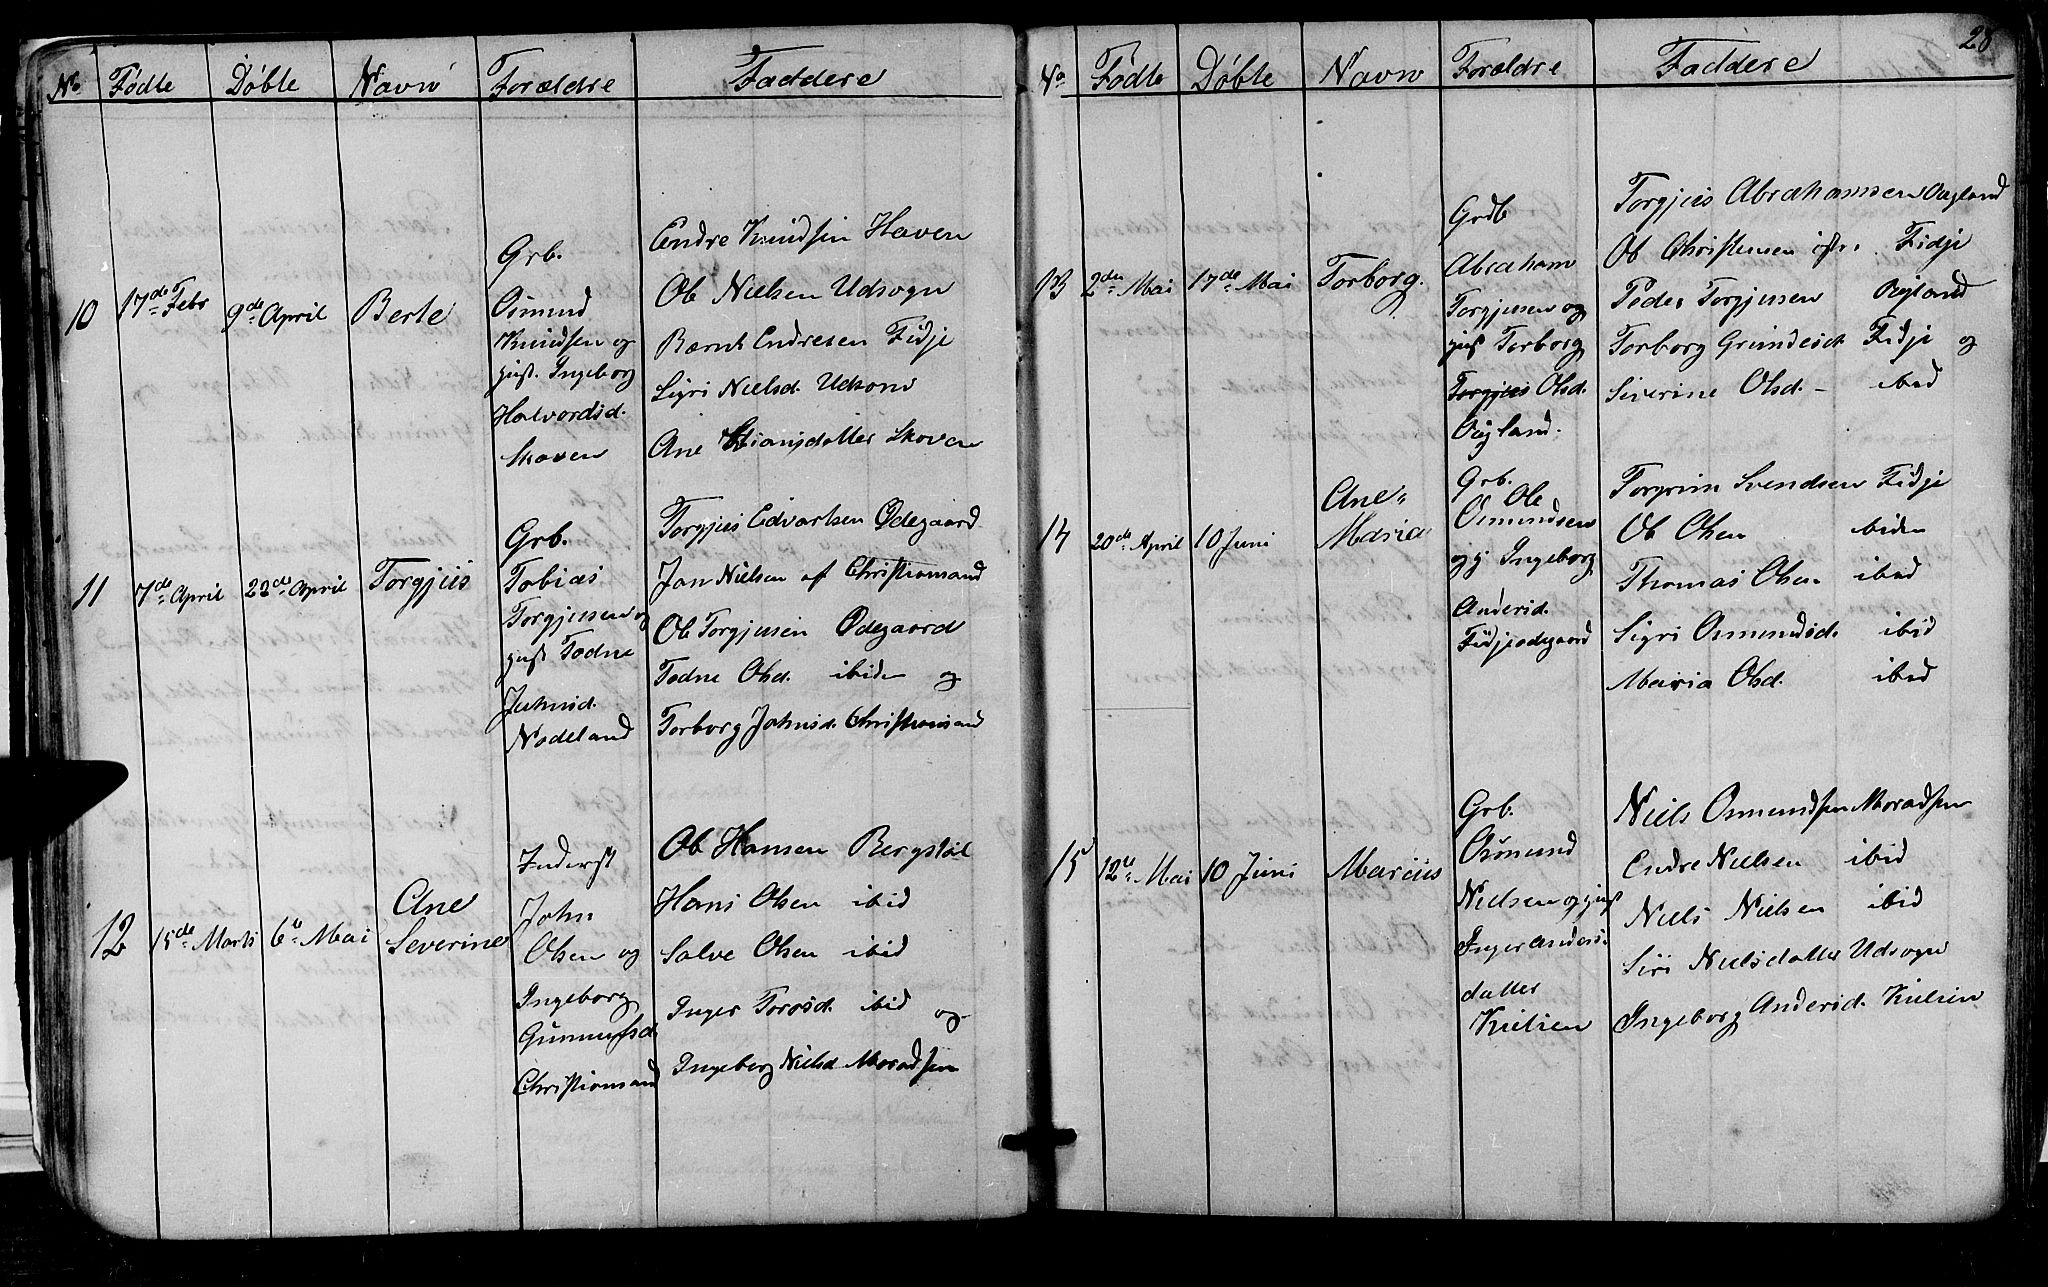 No Fødte Døbte Navn Forældre Faddere
10 17de Febr 9de April Berte
Grb.
Osmund
Knudsen og
gust. Ingeborg
Halvordsd.
Skoven
Endre Knudsen Haven
Ole Nielsen Udsogn
Bærnt Endresen Fidje
Sigri Nielsd. Udsogn
Ane Stiansdatter Skoven
11 7de April 22de April Torgjus
Grb.
Tobias
Torgjusen og
gust Todne
Johnsd.
Nodeland
Torgjus Edvartsen Ødegaard
Jan Nielsen af Christiansand
Ole Torgjusen Ødegaard
Todne Olsd. ibiden og
Torborg Johnsd. Christiansand
12 15de Marts 6te Mai Ane
Severine
Inderst
John
Olsen og
Ingeborg
Gunnulfsd.
Christiansand
Ole Hansen Bergstøl
Hans Olsen ibid
Salve Olsen ibid
Inger Torosd. ibid og
Ingeborg Nielsd. Moradsen
28
No Fødte Døbte Navn Forældre Faddere
13 2den Mai 17de Mai Torborg.
Grdb
Abraham
Torgjusen og
gust Torborg
Torgjus Olsd.
Vigland.
Torgjus Abrahamsen Vagland
Ole Christensen østr. Fidje
Peder Torgjusen Vigland
Torborg Grundesd. Fidje og
Siverine Olsd. - ibid
14 20de April 10 Juni Ane
Maria
Grb.
Ole
Osmundsen
og g Ingeborg
Andersd.
Fidjeødegaard
Torgrim Svendsen Fidje
Ole Olsen ibiden
Thomas Olsen ibid
Sigri Osmundsd. ibid
Maria Olsd. ibid
15 12te Mai 10 Juni Marius
Grb.
Osmund
Nielsen og gust
Inger Anders-
datter
Kulien
Niels Osmundsen Moradsen
Endre Nielsen ibid
Niels Nielsen ibid
Siri Nielsdatter Udsogn
Ingeborg Andersd. Kulien